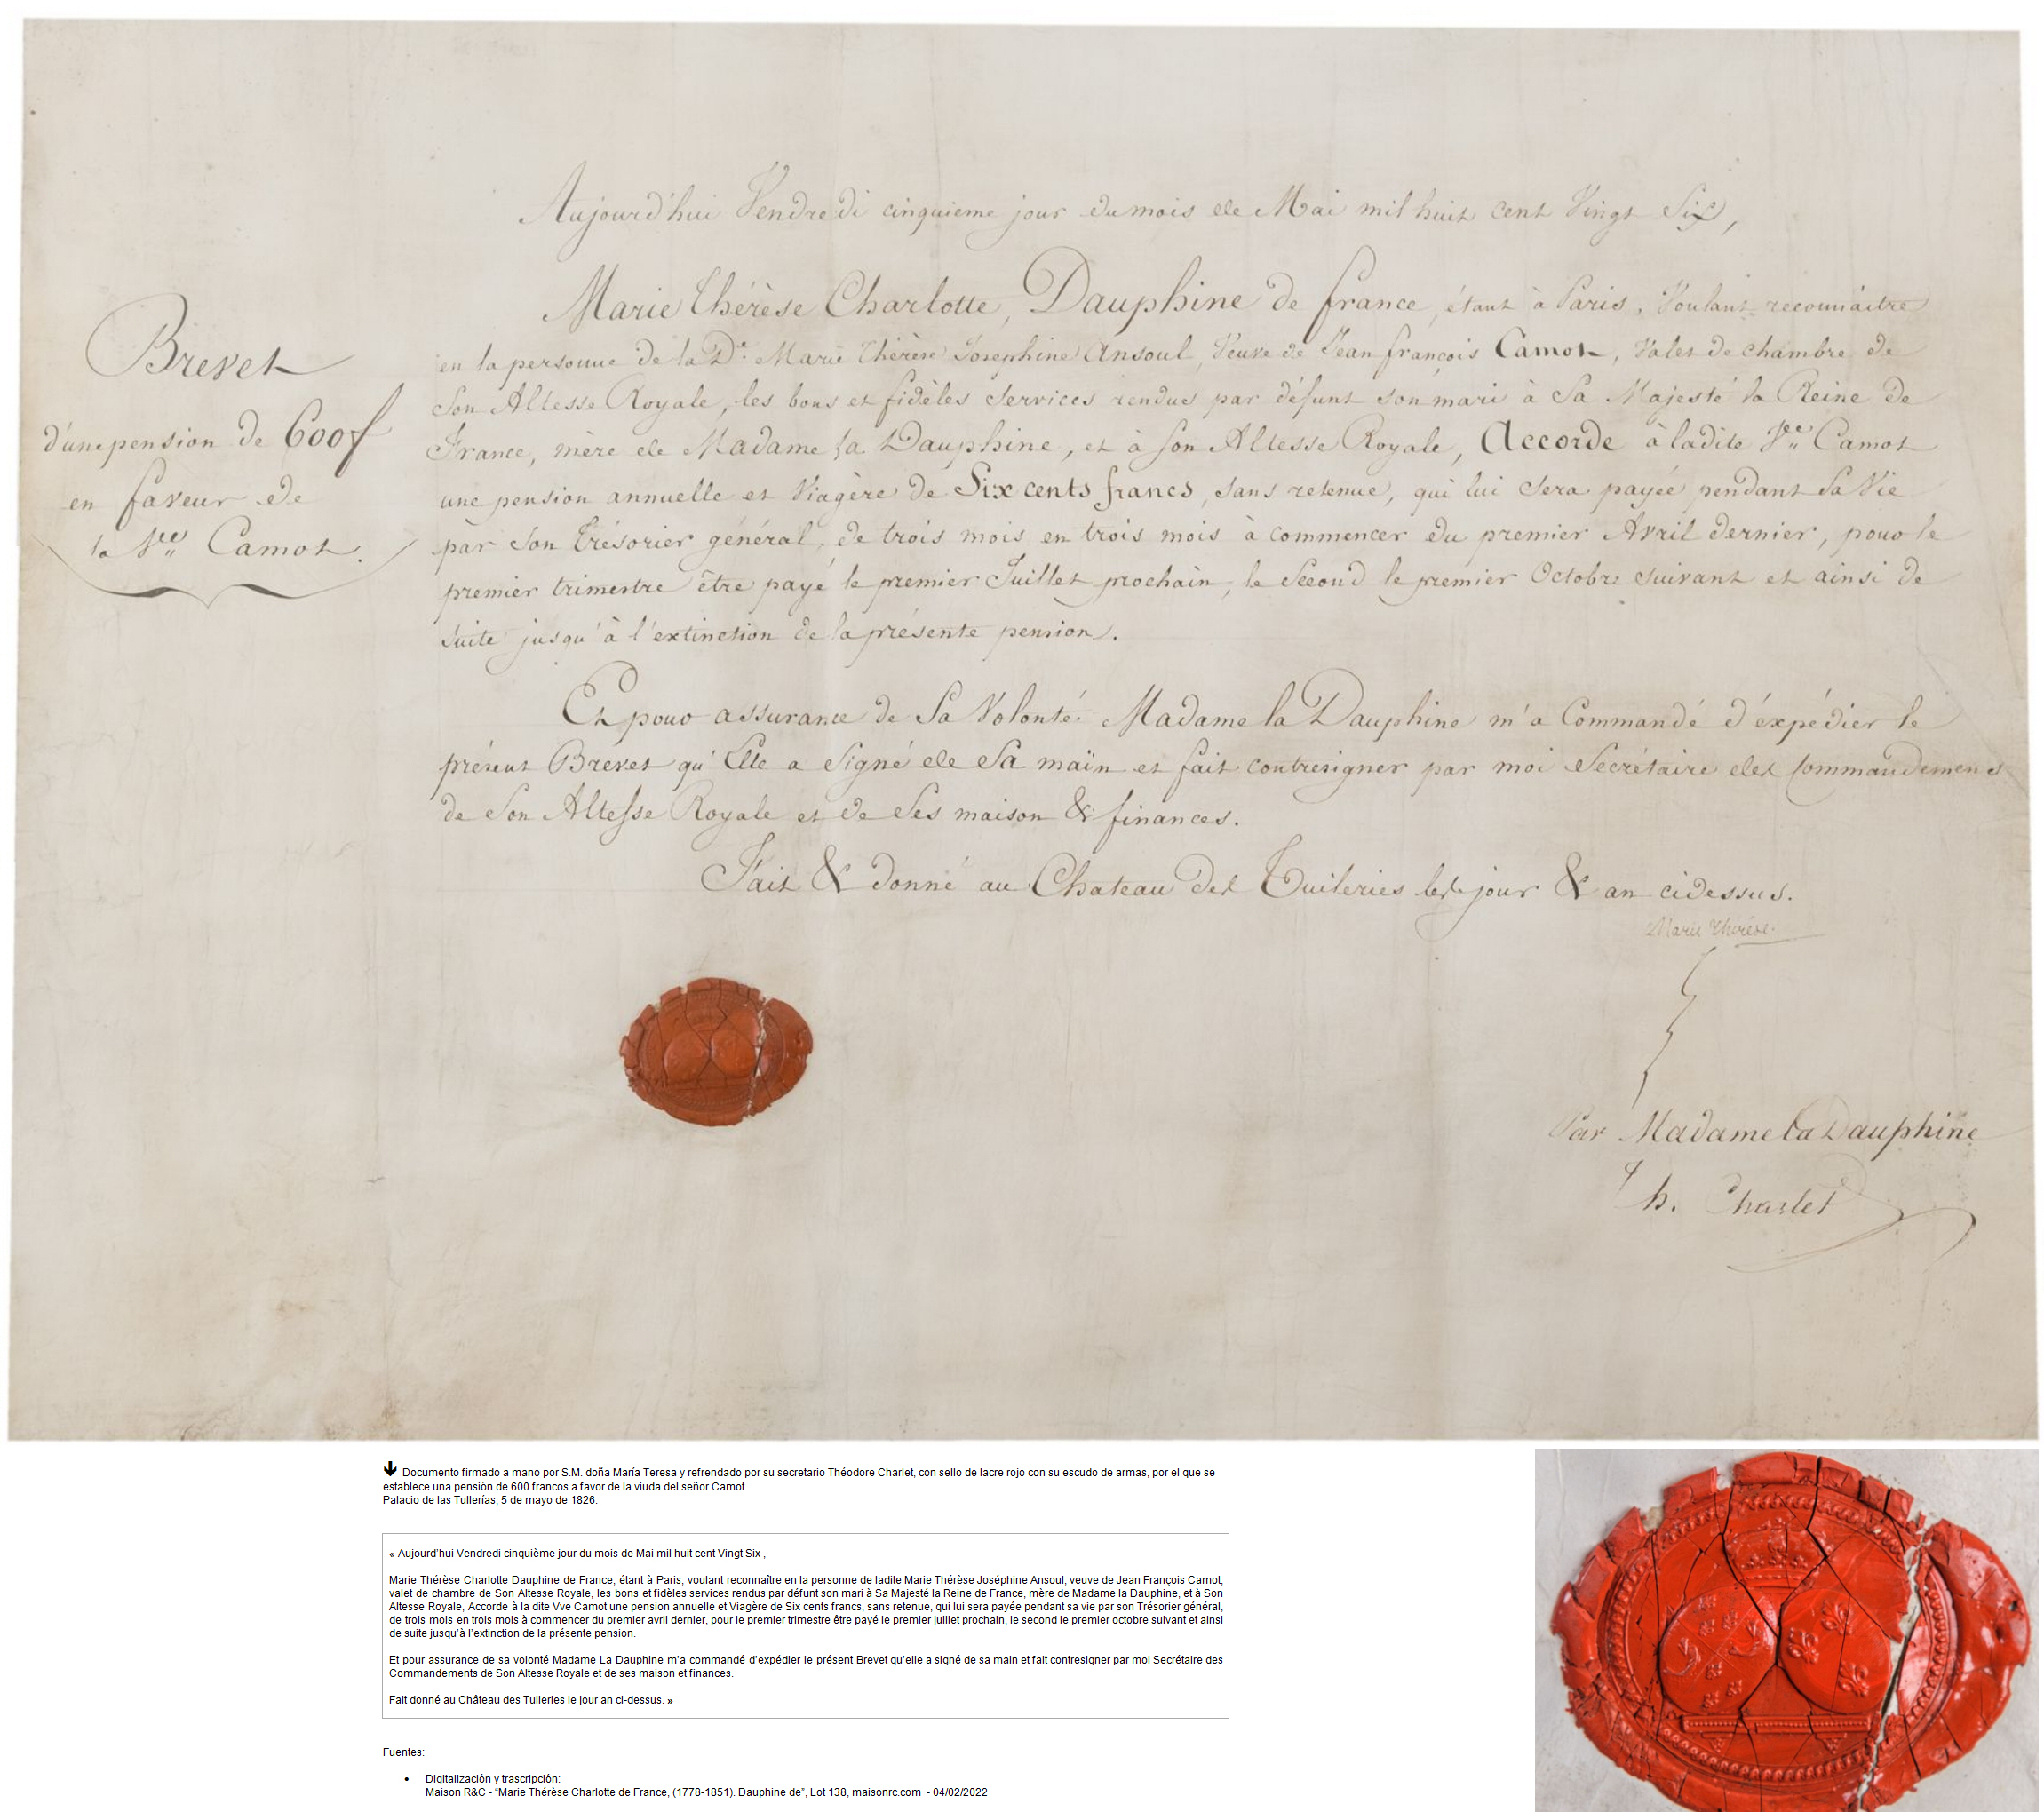 Aujourd'hui Vendredi cinquieme jour du mois de Mai mil huit cent Vingt Six,
Marie Thérèse Charlotte, Dauphine de france, étant à Paris, Voulant reconnaitre
en la personne de la De. Marie Thérèse Joséphine Ansoul, Veuve de Jean françois Camot, Valet de chambre de
Son Altesse Royale, les bons et fidèles Services rendus par défunt son mari à Sa Majesté la Reine de
France, mère de Madame la Dauphine, et à Son Altesse Royale, Accorde à ladite Vve Camot
une pension annuelle et Viagère de Six cents francs, sans retenue, qui lui sera payée pendant Sa Vie
par Son Trésorier général, de trois mois en trois mois à commencer du premier Avril dernier, pour le
premier trimestre être payé le premier Juillet prochain, le Second le premier Octobre suivant et ainsi de
suite jusqu'à l'extinction de la présente pension.
Et pour assurance de Sa Volonté Madame la Dauphine m'a Commandé d'expédier le
présent Brevet qu'Elle a Signé de Sa main et fait contresigner par moi Secrétaire des Commandemens
de Son Altesse Royale et de Ses maison & finances.
Fait & donné au Chateau des Tuileries les jour & an cidessus.
Brevet
d'une pension de 600f
en faveur de
la Vve Camot.
Marie Thérèse
Par Madame la Dauphine
Th. Charlet
🡻 Documento firmado a mano por S.M. doña María Teresa y refrendado por su secretario Théodore Charlet, con sello de lacre rojo con su escudo de armas, por el que se
establece una pensión de 600 francos a favor de la viuda del señor Camot.
Palacio de las Tullerías, 5 de mayo de 1826.
« Aujourd'hui Vendredi cinquième jour du mois de Mai mil huit cent Vingt Six ,
Marie Thérèse Charlotte Dauphine de France, étant à Paris, voulant reconnaître en la personne de ladite Marie Thérèse Joséphine Ansoul, veuve de Jean François Camot,
valet de chambre de Son Altesse Royale, les bons et fidèles services rendus par défunt son mari à Sa Majesté la Reine de France, mère de Madame la Dauphine, et à Son
Altesse Royale, Accorde à la dite Vve Camot une pension annuelle et Viagère de Six cents francs, sans retenue, qui lui sera payée pendant sa vie par son Trésorier général,
de trois mois en trois mois à commencer du premier avril dernier, pour le premier trimestre être payé le premier juillet prochain, le second le premier octobre suivant et ainsi
de suite jusqu'à l'extinction de la présente pension.
Et pour assurance de sa volonté Madame La Dauphine m'a commandé d'expédier le présent Brevet qu'elle a signé de sa main et fait contresigner par moi Secrétaire des
Commandements de Son Altesse Royale et de ses maison et finances.
Fait donné au Château des Tuileries le jour an ci-dessus. »
Fuentes:
• Digitalización y trascripción:
Maison R&C - “Marie Thérèse Charlotte de France, (1778-1851). Dauphine de”, Lot 138, maisonrc.com - 04/02/2022